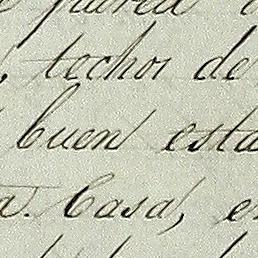 pared
, techos de
buen esta
a. Casa, e